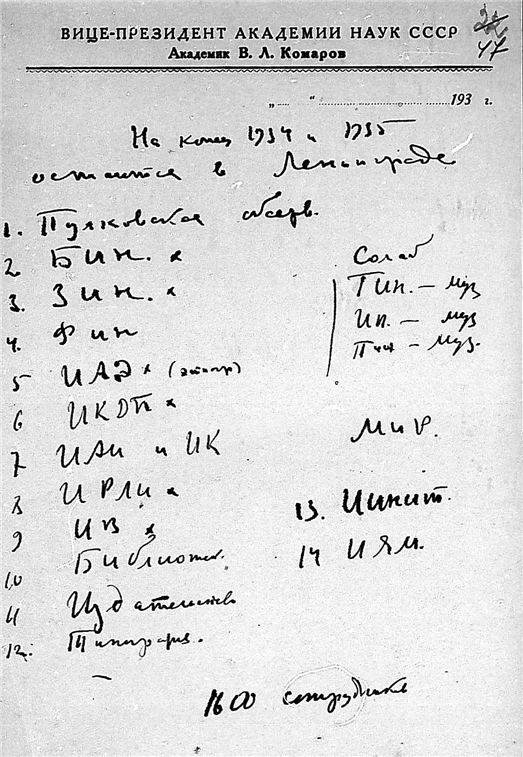 ВИЦЕ-ПРЕЗИДЕНТ АКАДЕМИИ НАУК СССР
Академик В. Л. Комаров
47
„ “ 193 г.
На конец 1934 и 1935
остаются в Ленинграде
1. Пулковская обсерв.
2. БИН. х
3. ЗИН. х
4. ФИН
5 ИАЭ х
6 ИКДП х
7 ИАИ и ИК
8 ИРЛИ х
9 ИВ х
10 Библиотек.
11 Издательство
12. Типограф.
ГИН. — муз
— муз
— муз.
13. ИИНИТ.
14 ИЯМ.
1600 сотрудников